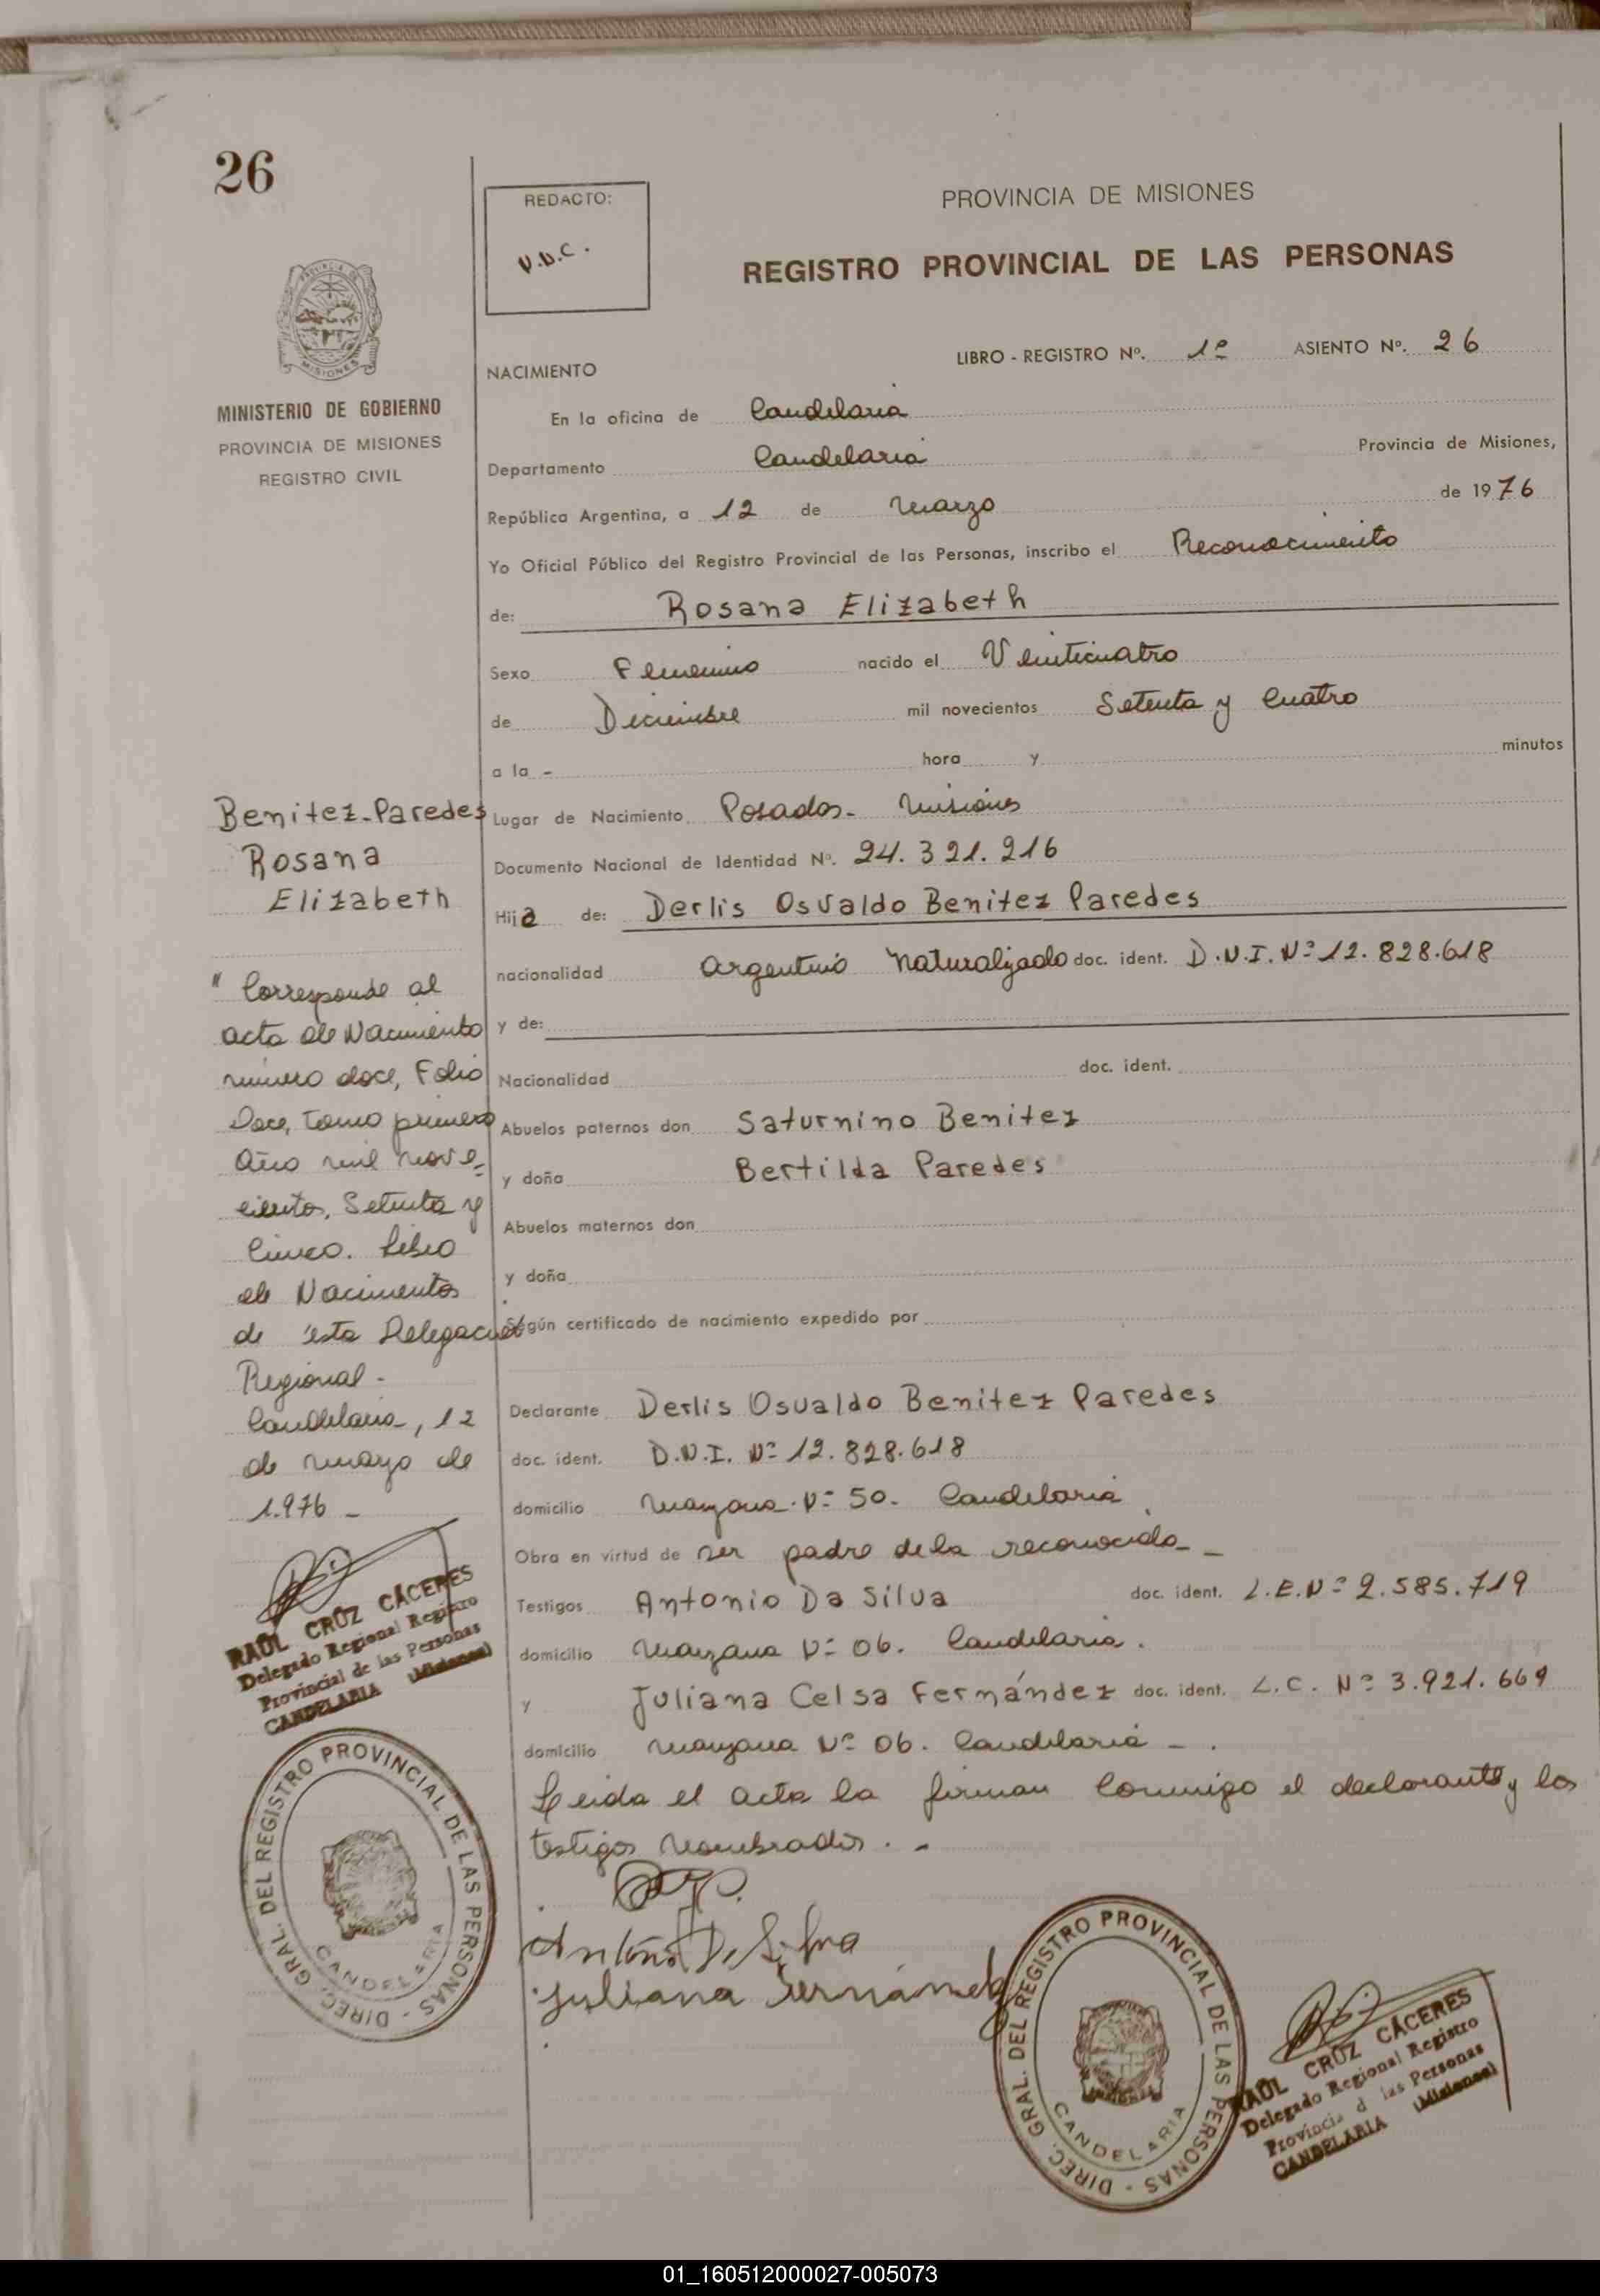 26
REDACTO:
V.D.C.
PROVINCIA DE MISIONES
REGISTRO PROVINCIAL DE LAS PERSONAS
MISIONES
MINISTERIO DE GOBIERNO
PROVINCIA DE MISIONES
REGISTRO CIVIL
LIBRO - REGISTRO Nº. 1º ASIENTO Nº. 26
NACIMIENTO
En la oficina de Candelaria
Departamento Candelaria Provincia de Misiones,
República Argentina, a 12 de Marzo de 1976
Yo Oficial Público del Registro Provincial de las Personas, inscribo el Reconocimiento
de: Rosana Elizabeth
Sexo Femenino nacido el Veinticuatro
de Diciembre mil novecientos Setenta y Cuatro
a la - hora y minutos
Lugar de Nacimiento Posadas - Misiones
Documento Nacional de Identidad Nº. 24.321.216
Hija de: Derlis Osvaldo Benitez Paredes
nacionalidad Argentino Naturalizado doc. ident. D.N.I. Nº 12.828.618
y de:
Nacionalidad doc. ident.
Abuelos paternos don Saturnino Benitez
y doña Bertilda Paredes
Abuelos maternos don
y doña
Según certificado de nacimiento expedido por
Declarante Derlis Osvaldo Benitez Paredes
doc. ident. D.N.I. Nº 12.828.618
domicilio Manzana Nº 50. Candelaria
Obra en virtud de ser padre de la reconocida - -
Testigos Antonio Da Silva doc. ident. L.E.Nº 2.585.719
domicilio Manzana Nº 06. Candelaria.
y Juliana Celsa Fernández doc. ident. L.C. Nº 3.921.669
domicilio Manzana Nº 06. Candelaria - .
Leida el acta la firman conmigo el declarante y los
testigos nombrados. -
Antonio Da Silva
Juliana Fernández
Benitez-Paredes
Rosana
Elizabeth
" Corresponde al
acta de Nacimiento
número doce, Folio
Doce, Tomo primero
Año mil nove=
cientos, Setenta y
Cinco. Libro
de Nacimientos
de ésta Delegación
Regional -
Candelaria, 12
de marzo de
1.976 -
RAÚL CRUZ CÁCERES
Delegado Regional Registro
Provincial de las Personas
CANDELARIA (Misiones)
DIREC. GRAL. DEL REGISTRO PROVINCIAL DE LAS PERSONAS -
CANDELARIA
DIREC. GRAL. DEL REGISTRO PROVINCIAL DE LAS PERSONAS -
CANDELARIA
RAÚL CRUZ CÁCERES
Delegado Regional Registro
Provincia d las Personas
CANDELARIA (Misiones)
01_160512000027-005073